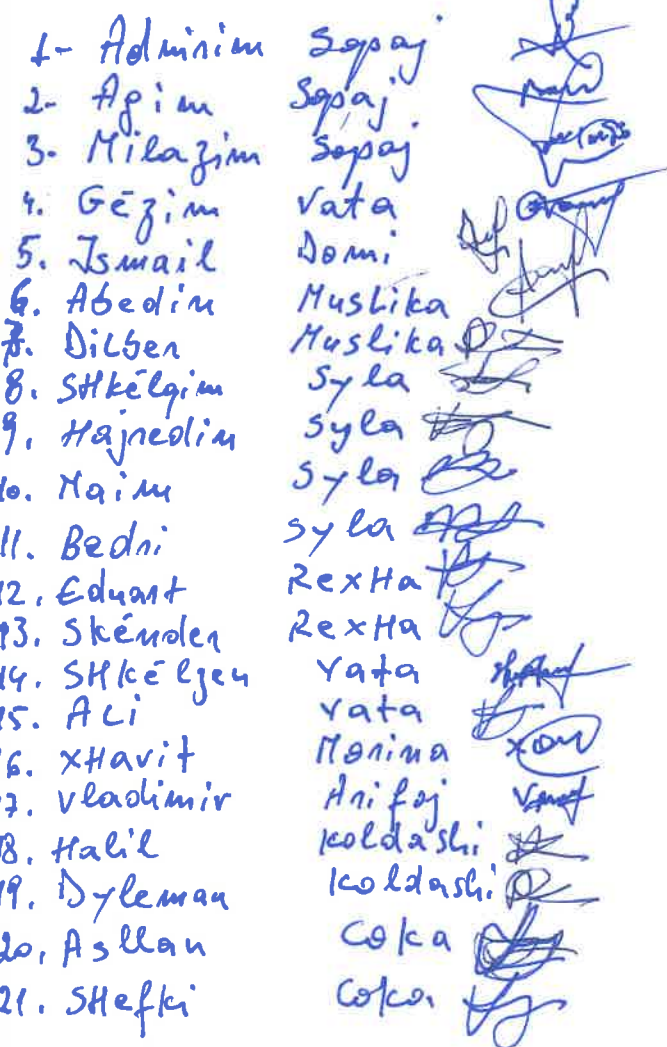 1- Adminim Sopaj
2- Agim Sopaj
3- Milazim Sopaj
4. Gëzim Vata
5. Ismail Domi
6. Abedin Muslika
7. Dilber Muslika
8. SHkëlqim Syla
9. Hajredin Syla
10. Naim Syla
11. Bedri Syla
12. Eduart RexHa
13. Skënder RexHa
14. SHkëlzen Vata
15. ALi Vata
16. XHavit Morina
17. Vladimir Arifaj
18. Halil Koldashi
19. Dyleman Koldashi
20. Asllan Coka
21. SHefki Coka